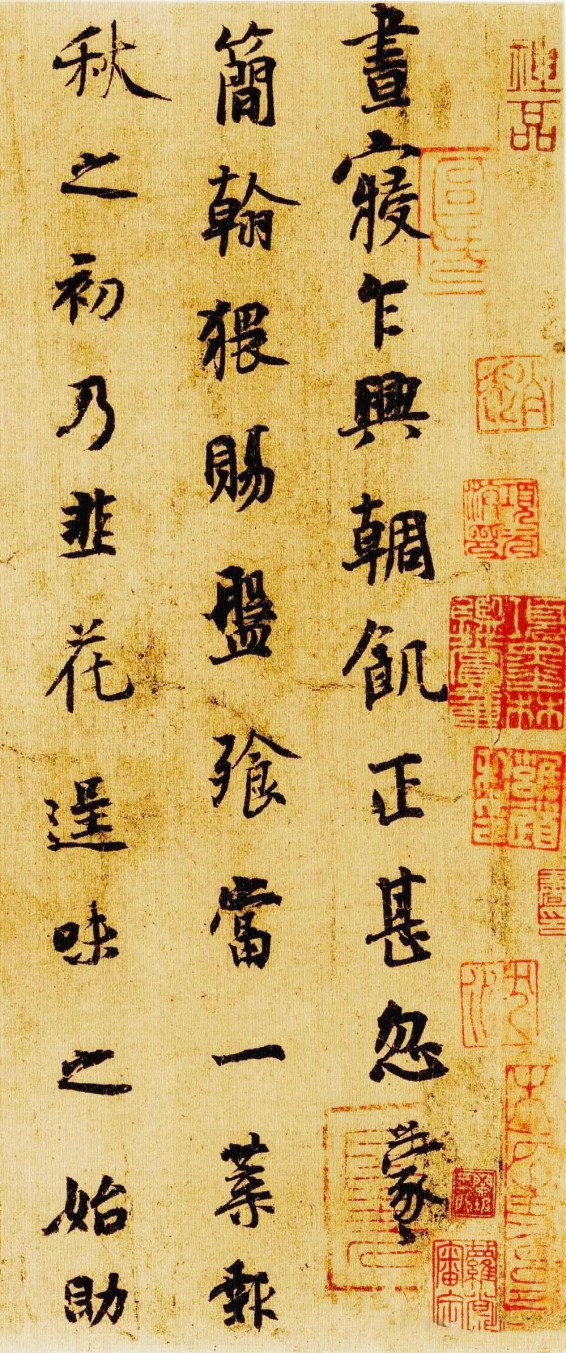 項墨林鑑賞章
晝寢乍興輖飢正甚忽蒙
簡翰猥賜盤飧當一葉報
秋之初乃韭花逞味之始助